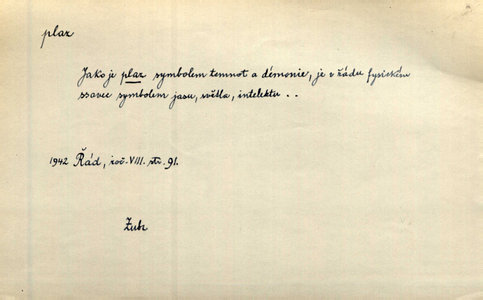 plaz
Jako je plaz symbolem temnot a démonie, je v řádu fysickém
ssavec symbolem jasu, světla, intelektu..
1942 Řád, roč. VIII. str. 91.